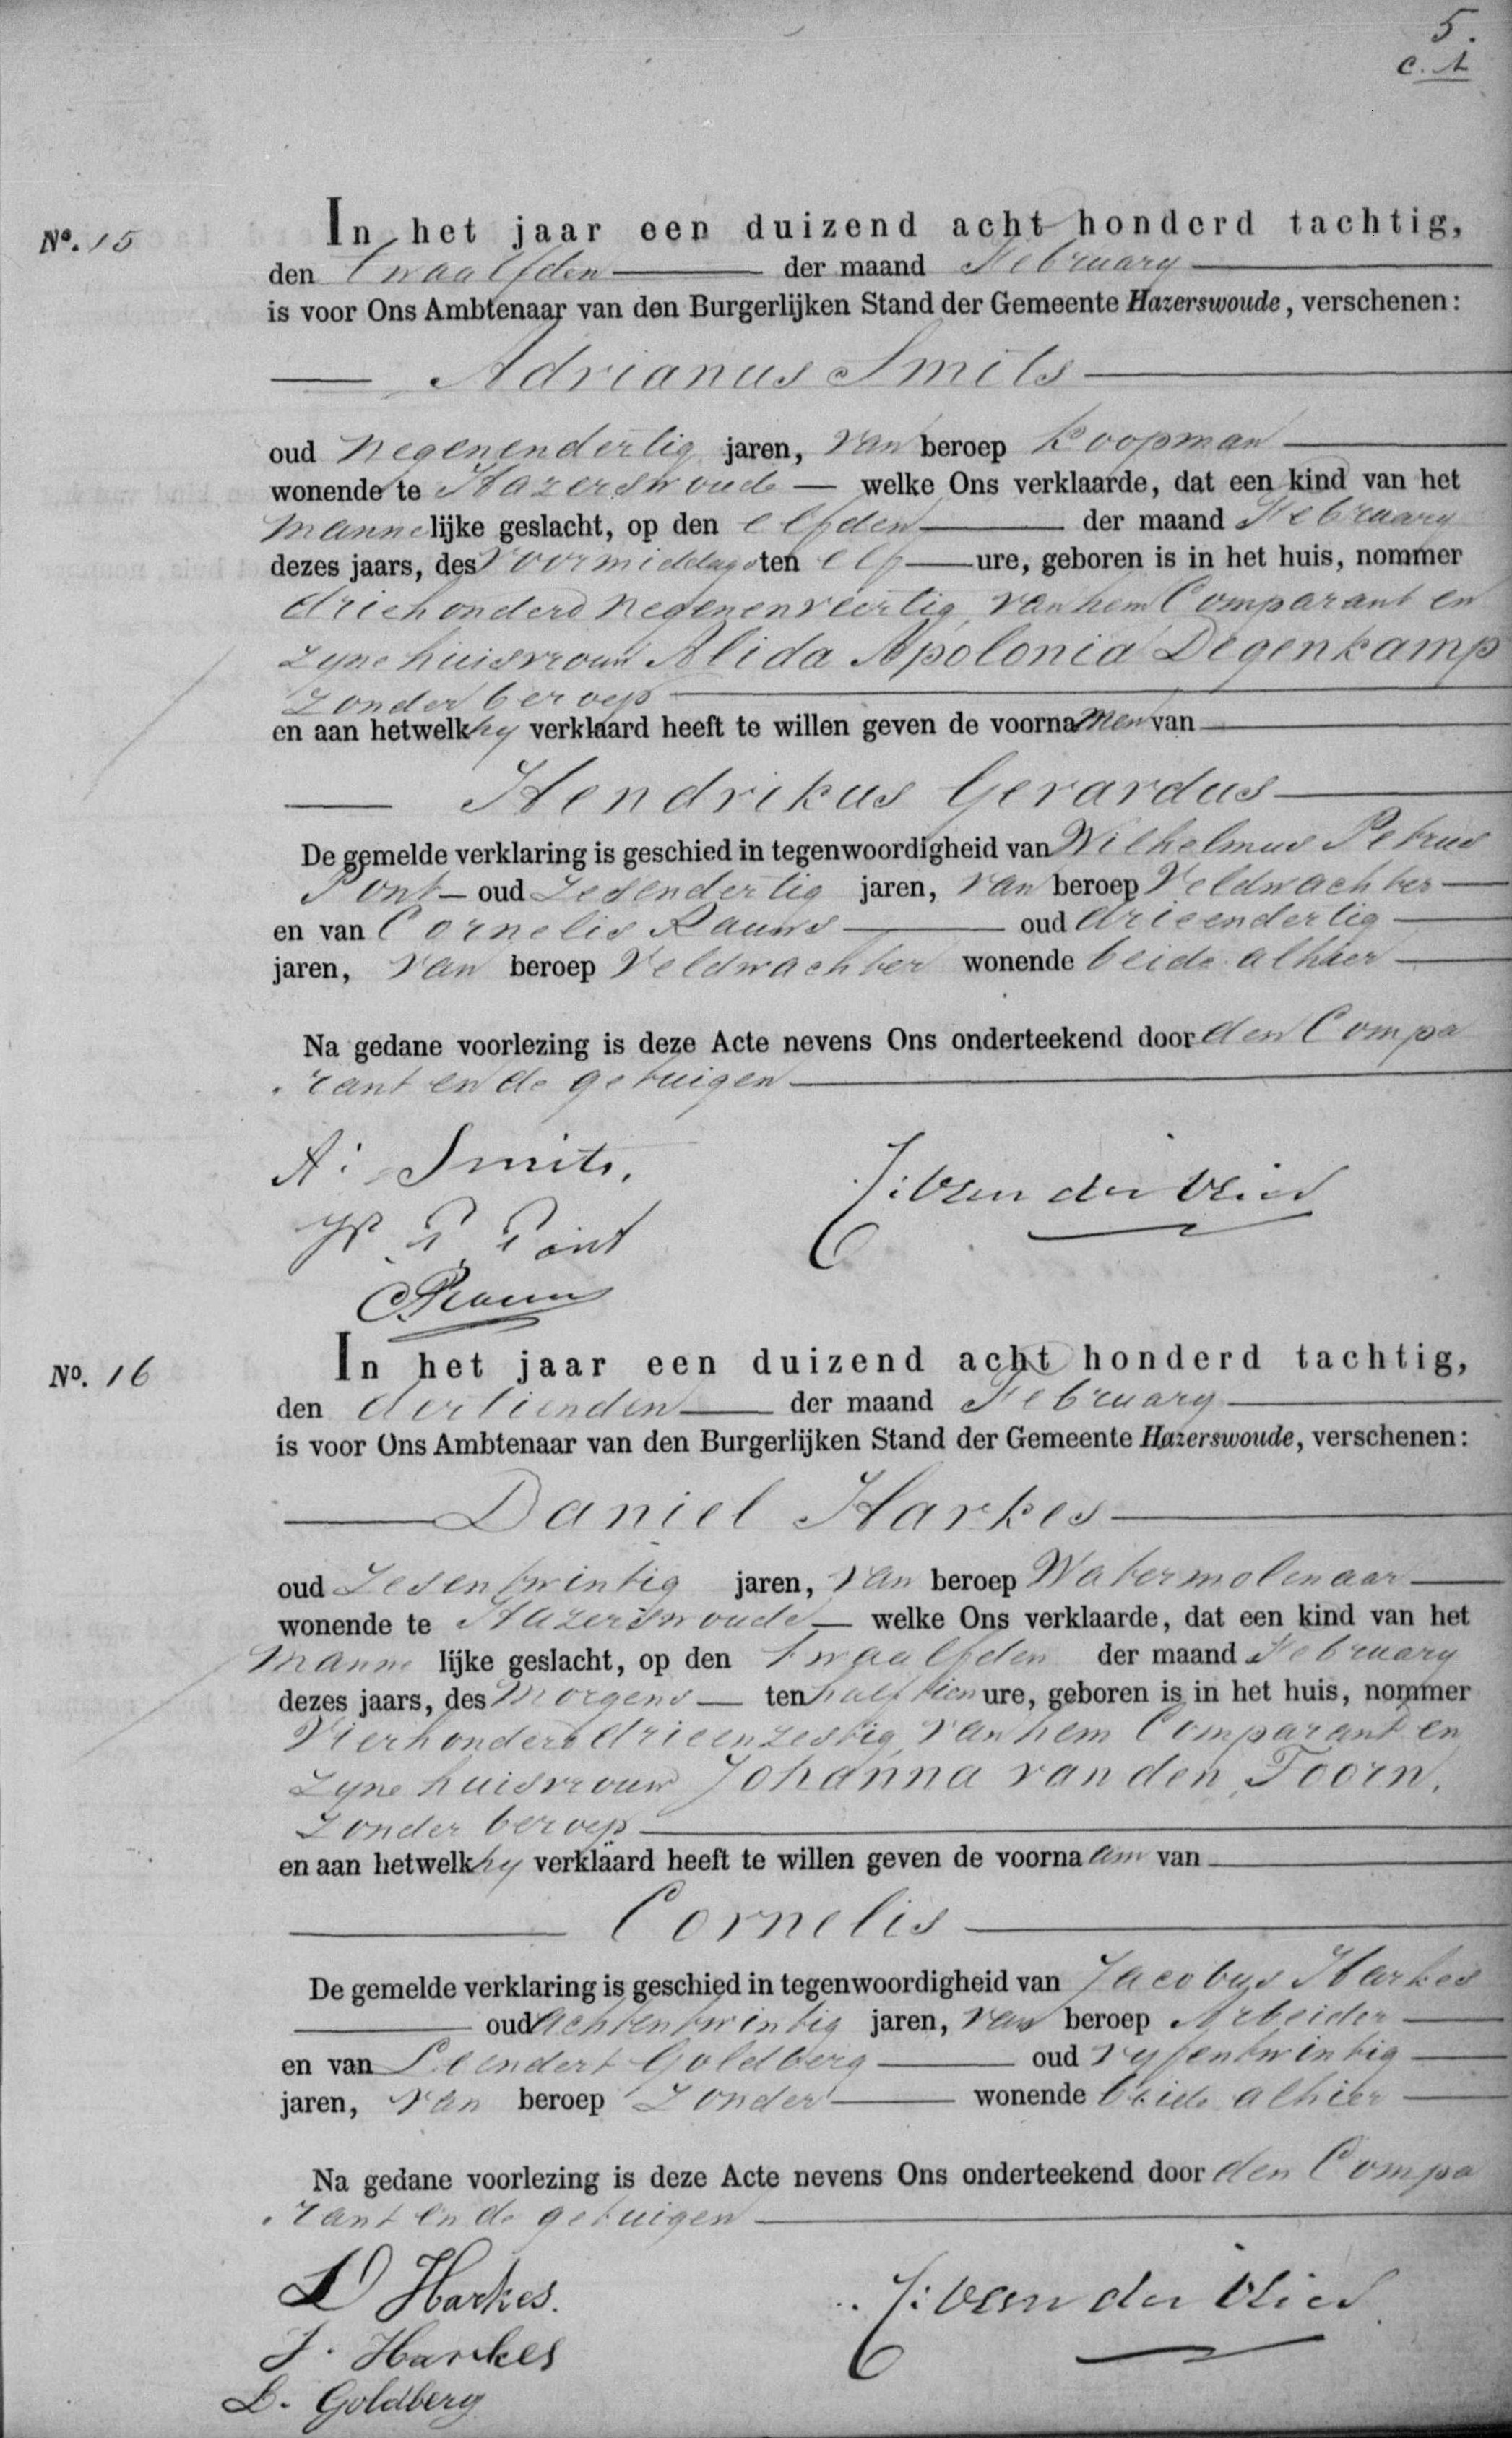 5.
c. 1
No. 15
In het jaar een duizend acht honderd tachtig,
den Twaalfden der maand February
is voor Ons Ambtenaar van den Burgerlijken Stand der Gemeente Hazerswoude, verschenen:
Adrianus Smits
oud negenendertig jaren, van beroep Koopman
wonende te Hazerswoude welke Ons verklaarde, dat een kind van het
mannelijke geslacht, op den elfden der maand February
dezes jaars, des voormiddags ten elf ure, geboren is in het huis, nommer
driehonderd negenenveertig, van hem Comparant en
zyne huisvrouw Alida Apolonia Degenkamp
zonder beroep
en aan hetwelk hy verklaard heeft te willen geven de voornamen van
Hendrikus Gerardus
De gemelde verklaring is geschied in tegenwoordigheid van Wilhelmus Petrus
Pont oud zesendertig jaren, van beroep Veldwachter
en van Cornelis Rauws oud drieendertig
jaren, van beroep Veldwachter wonende beide alhier
Na gedane voorlezing is deze Acte nevens Ons onderteekend door den Compa
rant en de getuigen
A: Smits.
W P Pont
C Rauws
J: van der Vlied
No. 16
In het jaar een duizend acht honderd tachtig,
den dertienden der maand February
is voor Ons Ambtenaar van den Burgerlijken Stand der Gemeente Hazerswoude, verschenen:
Daniel Harkes
oud zesentwintig jaren, van beroep Watermolenaar
wonende te Hazerswoude welke Ons verklaarde, dat een kind van het
manne lijke geslacht, op den twaalfden der maand February
dezes jaars, des morgens ten half tien ure, geboren is in het huis, nommer
vierhonderd drieenzestig, van hem Comparant en
zyne huisvrouw Johanna van den Toorn,
zonder beroep
en aan hetwelk hy verklaard heeft te willen geven de voornaam van
Cornelis
De gemelde verklaring is geschied in tegenwoordigheid van Jacobus Harkes
oud achtentwintig jaren, van beroep Arbeider
en van Leendert Goldberg oud vyfentwintig
jaren, van beroep zonder wonende beide alhier
Na gedane voorlezing is deze Acte nevens Ons onderteekend door den Compa
rant en de getuigen
D Harkes.
J. Harkes
L. Goldberg
J: van der Vlied